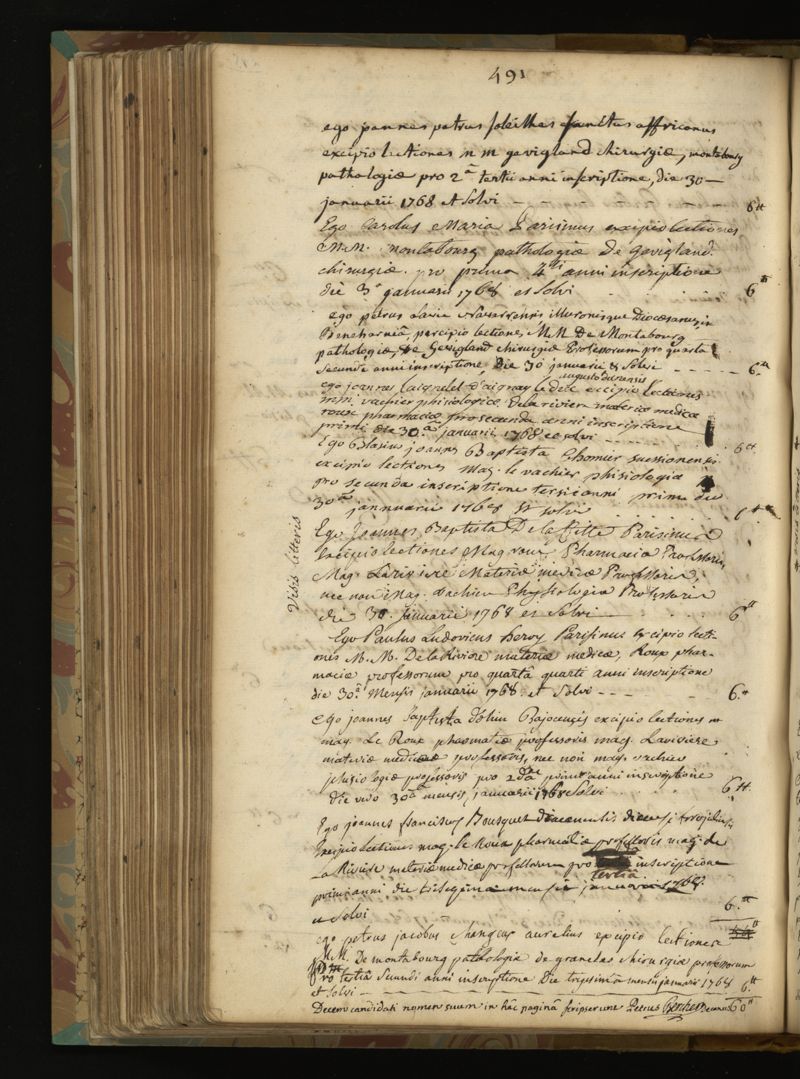 491
ego joannes petrus soleilhes sanctus affricanus
excipio lectiones m m gevigland chirurgiæ, montabourg
pathologiæ pro 2ª tertii anni inscriptione, die 30
januarii 1768 et solvi 6tt
Ego Carolus Maria Parisinus excipio lectiones
M.M. montabourg pathologiæ De Gevigland
chirurgiæ. pro prima 4ti anni inscriptione
die 3ª januarii 1768 et solvi 6tt
ego petrus Navarrensis illuronisque Diocæsanus, in
Beneharniâ, percipio lectiones M.M. De Montabourg
pathologiæ, de Gevigland chirurgiæ Professorum pro quarta
secundi anni inscriptione, Die 30 januarii & solvi 6.tt
augustodunensis
ego joannes d'aignay le duc excipio lectiones
mmi vachier phisiologiæ Delariviere materiæ medicæ
roux pharmaciæ pro secunda anni inscriptione
primi die 30.ª januarii 1768 et solvi 6tt
Ego Blasius joannes Baptista Thomier suessionensis
excipio lectiones Mag. le vachier phisiologiæ
pro secunda inscriptione anni primi die
30ª jannuarii 1768 et solvi 6tt
Visis litteris
Ego Joannes Baptista De la fitte Parisinus
Excipio lectiones Mag roux Pharmaciæ Professoris,
Mag. Lariviere Materiæ medicæ Professoris,
nec non Mag. Vachier Physiologiæ Professoris
die 30. Januarii 1768 et solvi 6tt
Ego Paulus Ludovicus Parisinus Excipio lecti-
ones M.M. De la Riviere materiæ medicæ, Roux phar-
maciæ professorum pro quartâ quarti anni inscriptione
die 30ª Mensis januarii 1768 et solvi 6.tt
Ego joannes baptista Bajocensis excipio lectiones
mag. Le Roux pharmaciæ professoris mag. Lariviere
materiæ medicæ professoris, nec non mag. vachier
phisiologiæ professoris pro 2da primi anni inscriptione
die 30ª mensis januarii 1768 solvi 6tt.
Ego joannes franciscus Bousquet
Excipio lectiones mag. le Roux pharmaciæ professoris mag. de
La Riviere materiæ medicæ professorum pro tertiâ inscriptione
primi anni die trisesima mensis januarii 1768.
et solvi 6.tt
ego petrus jacobus changeux aurelius excipio lectiones 54tt
M.M. De montabourg pathologiæ de chirurgiæ professorum
pro tertiâ secundi anni inscriptione Die trigesimâ mensis januarii 1768 6tt
et solvi
Decem candidati nomen suum in hâc paginâ scripserunt Petrus Bercher Decanus 60tt